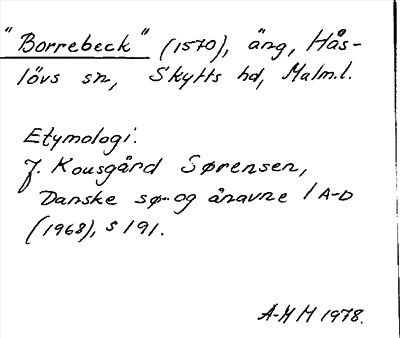 "Borrebeck" (1570), äng, Hås-
lövs sn, Skytts hd, Malm.l.
Etymologi.
J. Kousgård Sørensen,
Danske sø- og ånavne 1 A-D
(1968), s 191.
A-M M 1978.